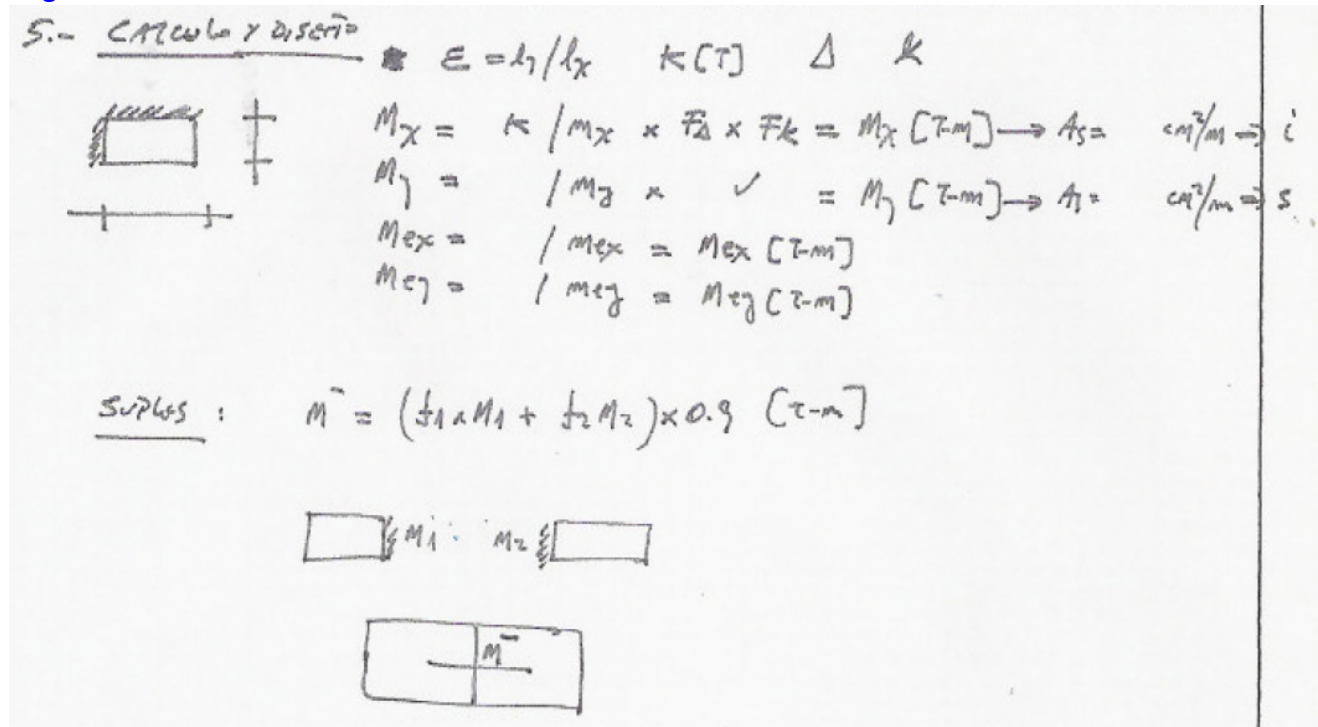 5.- CALCULO Y DISEÑO
ε = ly/lx K[T] Δ k
Mx = K / mx × FΔ × Fk = Mx [T-m] → As = cm²/m ⇒ i
My = / my × ✓ = My [T-m] → As = cm²/m ⇒ s
Mex = / mex = Mex [T-m]
Mey = / mey = Mey [T-m]
SUPLES : M⁻ = (f1 × M1 + f2 M2) × 0.9 [T-m]
M1 M2
M⁻